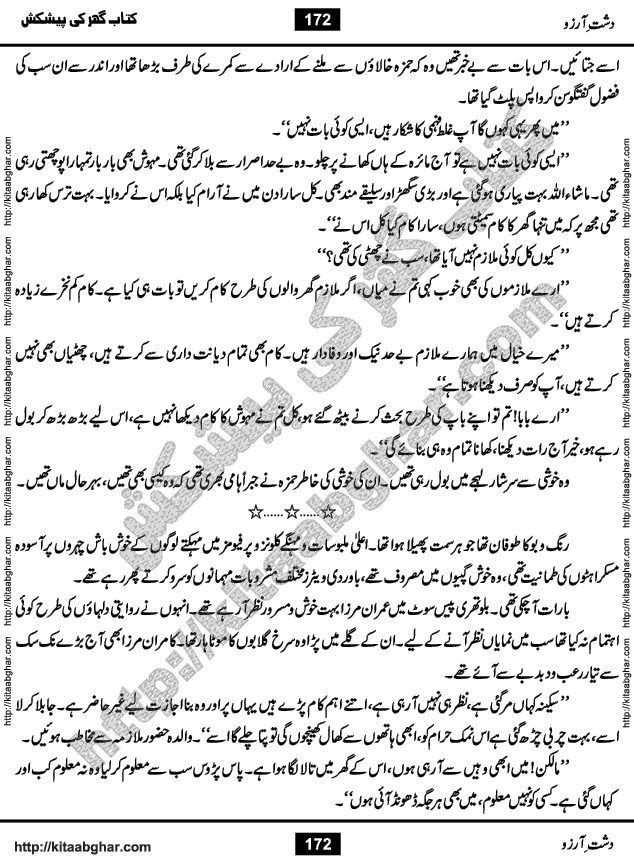 کتاب گھر کی پیشکش 172 دشتِ آرزو
اسے جتائیں۔ اس بات سے بے خبر تھیں وہ کہ حمزہ خالاؤں سے ملنے کے ارادے سے کمرے کی طرف بڑھا تھا اور اندر سے ان سب کی
فضول گفتگو سن کر واپس پلٹ گیا تھا۔
’’میں پھر یہی کہوں گا آپ غلط فہمی کا شکار ہیں، ایسی کوئی بات نہیں‘‘۔
’’ایسی کوئی بات نہیں ہے تو آج مائرہ کے ہاں کھانے پر چلو۔ وہ بے حد اصرار سے بلا کر گئی تھی۔ مہوش بھی بار بار تمہارا پوچھتی رہی
تھی۔ ماشاء اللہ بہت پیاری ہو گئی ہے اور بڑی سگھڑ اور سلیقے مند بھی۔ کل سارا دن میں نے آرام کیا بلکہ اس نے کروایا۔ بہت ترس کھا رہی
تھی مجھ پر کہ میں تنہا گھر کا کام سمیٹتی ہوں، سارا کام کیا کل اس نے‘‘۔
’’کیوں کل کوئی ملازم نہیں آیا تھا، سب نے چھٹی کی تھی؟‘‘
’’ارے ملازموں کی بھی خوب کہی تم نے میاں، اگر ملازم گھر والوں کی طرح کام کریں تو بات ہی کیا ہے۔ کام کم نخرے زیادہ
کرتے ہیں‘‘۔
’’میرے خیال میں ہمارے ملازم بے حد نیک اور وفادار ہیں۔ کام بھی تمام دیانت داری سے کرتے ہیں، چھٹیاں بھی نہیں
کرتے ہیں، آپ کو صرف دیکھنا ہوتا ہے‘‘۔
’’ارے بابا! تم تو اپنے باپ کی طرح بحث کرنے بیٹھ گئے ہو، کل تم نے مہوش کا کام دیکھا نہیں ہے، اس لیے بڑھ بڑھ کر بول
رہے ہو، خیر آج رات دیکھنا، کھانا تمام وہ ہی بنائے گی‘‘۔
وہ خوشی سے سرشار لہجے میں بول رہی تھیں۔ ان کی خوشی کی خاطر حمزہ نے جبراً ہامی بھری تھی کہ وہ کیسی بھی تھیں، بہر حال ماں تھیں۔
☆......☆......☆
رنگ و بو کا طوفان تھا جو ہر سمت پھیلا ہوا تھا۔ اعلیٰ ملبوسات و مہنگے کلونز و پرفیومز میں مہکتے لوگوں کے خوش باش چہروں پر آسودہ
مسکراہٹوں کی طمانیت تھی، وہ خوش گپیوں میں مصروف تھے، باوردی ویٹرز مختلف مشروبات مہمانوں کو سرو کرتے پھر رہے تھے۔
بارات آ چکی تھی۔ بلو تھری پیس سوٹ میں عمران مرزا بہت خوش و مسرور نظر آ رہے تھے۔ انہوں نے روایتی دلہاؤں کی طرح کوئی
اہتمام نہ کیا تھا سب میں نمایاں نظر آنے کے لیے۔ ان کے گلے میں پڑا وہ سرخ گلابوں کا موٹا ہار تھا۔ کامران مرزا بھی آج بڑے تک سک
سے تیار رعب و دبدبے سے آئے تھے۔
’’سکینہ کہاں مر گئی ہے، نظر ہی نہیں آ رہی ہے، اتنے اہم کام پڑے ہیں یہاں پر اور وہ بنا اجازت لیے غیر حاضر ہے۔ جا بلا کر لا
اسے، بہت چربی چڑھ گئی ہے اس نمک حرام کو، ابھی ہاتھوں سے کھال کھینچوں گی تو پتا چلے گا اسے‘‘۔ والدہ حضور ملازمہ سے مخاطب ہوئیں۔
’’مالکن! میں ابھی وہیں سے آ رہی ہوں، اس کے گھر میں تالا لگا ہوا ہے۔ پاس پڑوس سب سے معلوم کر لیا وہ نہ معلوم کب اور
کہاں گئی ہے۔ کسی کو نہیں معلوم، میں بھی ہر جگہ ڈھونڈ آئی ہوں‘‘۔
http://kitaabghar.com 172 دشتِ آرزو
http://kitaabghar.com
http://kitaabghar.com
http://kitaabghar.com
http://kitaabghar.com
http://kitaabghar.com
http://kitaabghar.com
http://kitaabghar.com
http://kitaabghar.com
http://kitaabghar.com
http://kitaabghar.com
http://kitaabghar.com
http://kitaabghar.com
کتاب گھر کی پیشکش
http://kitaabghar.com